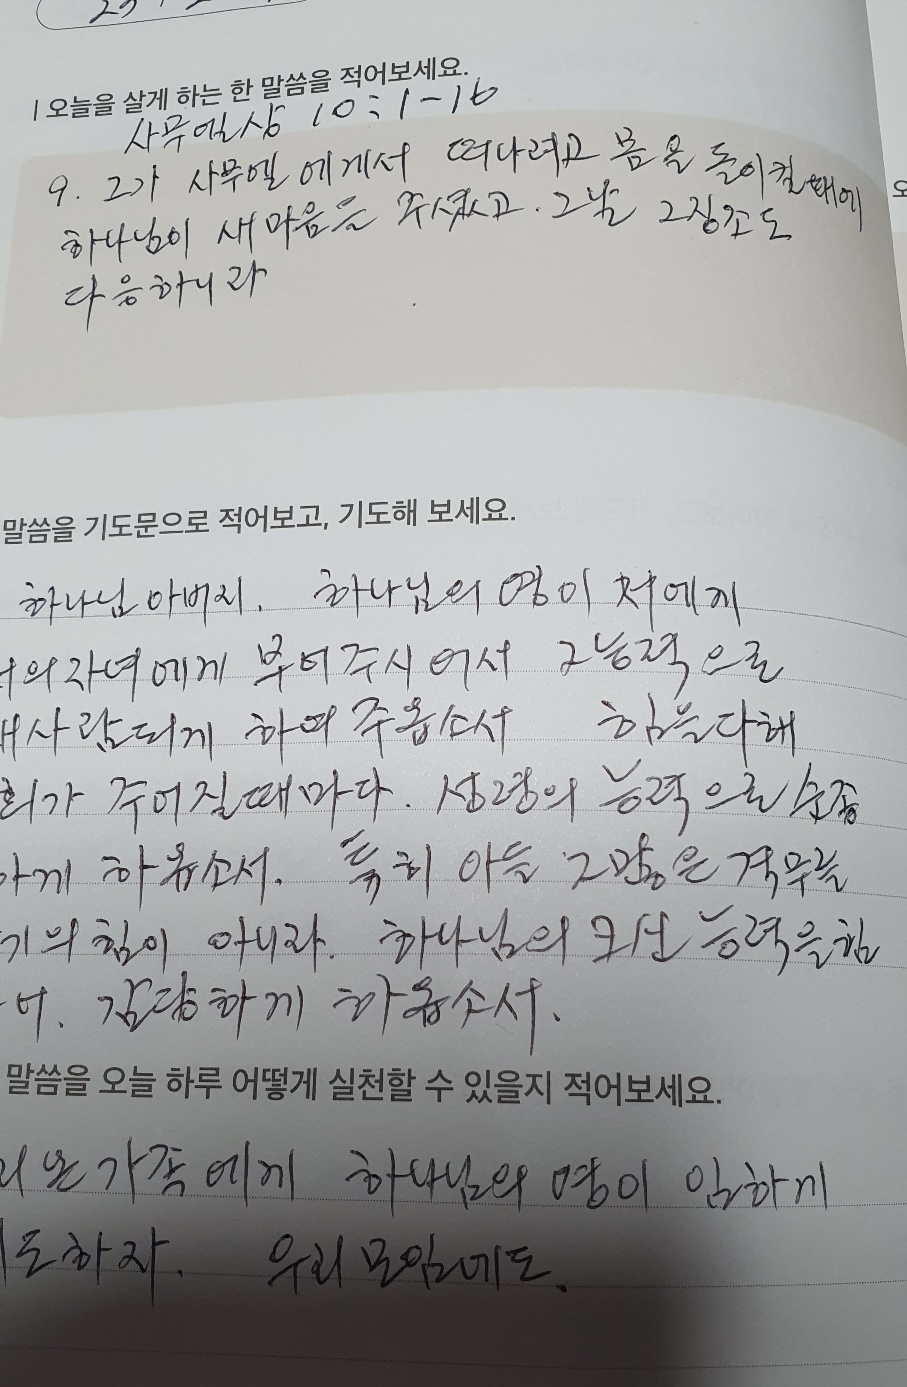 | 오늘을 살게 하는 한 말씀을 적어보세요.
사무엘상 10:1-16
9. 그가 사무엘에게서 떠나려고 몸을 돌이킬때에
하나님이 새마음을 주셨고. 그날 그징조도
다응하니라
말씀을 기도문으로 적어보고, 기도해 보세요.
하나님아버지. 하나님의 영이 저에게
의자녀에게 부어주시어서 그능력으로
사람되게 하여주옵소서 힘을다해
회가 주어질때마다. 성령의 능력으로 순종
하게 하옵소서. 특히 아들 그많은 격무를
기의힘이 아니라. 하나님의 크신 능력을힘
감당하게 하옵소서.
말씀을 오늘 하루 어떻게 실천할 수 있을지 적어보세요.
리온가족에게 하나님의 영이 임하게
도하자. 우리모임에도.